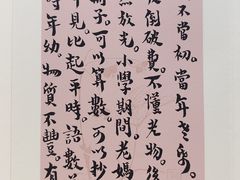 不當初。當年
後倒破費。不懂光物。後
然放光。小學期間。老媽
冊子。可以算數。可以抄
年見比起平時。語數
時年幼。物質不豐。有